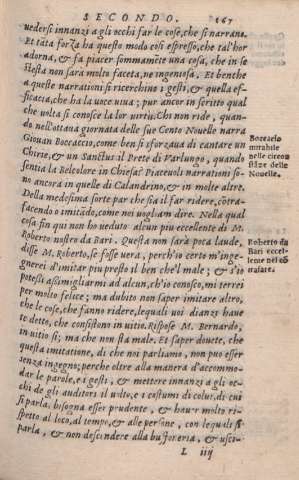 SECONDO. 167
uedersi innanzi a gli occhi far le cose, che si narrano.
Et tāta forza ha questo modo cosi espresso, che tal'hor
adorna, & fa piacer sommamēte una cosa, che in se
stessa non sarà molto faceta, ne ingeniosa. Et benche
a queste narrationi si ricerchino i gesti, & quella ef-
ficacia, che ha la uoce uiua; pur ancor in scritto qual
che uolta si conosce la lor uirtù. Chi non ride, quan-
do nell'ottaua giornata delle sue Cento Nouelle narra
Giouan Boccaccio, come ben si sforzaua di cantare un
Chirie, & un Sanctus il Prete di Varlungo, quando
sentia la Belcolore in Chiesa? Piaceuoli narrationi so-
no ancora in quelle di Calandrino, & in molte altre.
Della medesima sorte par che sia il far ridere, cōtra-
facendo o imitādo, come noi uogliam dire. Nella qual
cosa fin qui non ho ueduto alcun piu eccellente di M.
Roberto nostro da Bari. Questa non sarà poca laude,
disse M. Roberto, se fosse uera, perch'io certo m'inge-
gnerei d'imitar piu presto il ben che'l male; & s'io
potessi assimigliarmi ad alcun, ch'io conosco, mi terrei
per molto felice; ma dubito non saper imitare altro,
che le cose, che fanno ridere, lequali uoi dianzi haue
te detto, che consistono in uitio. Rispose M. Bernardo,
in uitio si; ma che non stà male. Et saper douete, che
questa imitatione, di che noi parliamo, non puo esser
senza ingegno; perche oltre alla maniera d'accommo-
dar le parole, e i gesti, & mettere innanzi a gli oc-
chi de gli auditori il uolto, e i costumi di colui, di cui
si parla, bisogna esser prudente, & hauer molto ri-
spetto al loco, al tempo, & alle persone, con lequali si
parla, & non descindere alla buffoneria, & usci-
L iiij
Boccacio
mirabile
nelle circon
stāze delle
Nouelle.
Roberto da
Bari eccel-
lente nel cō
trafare.